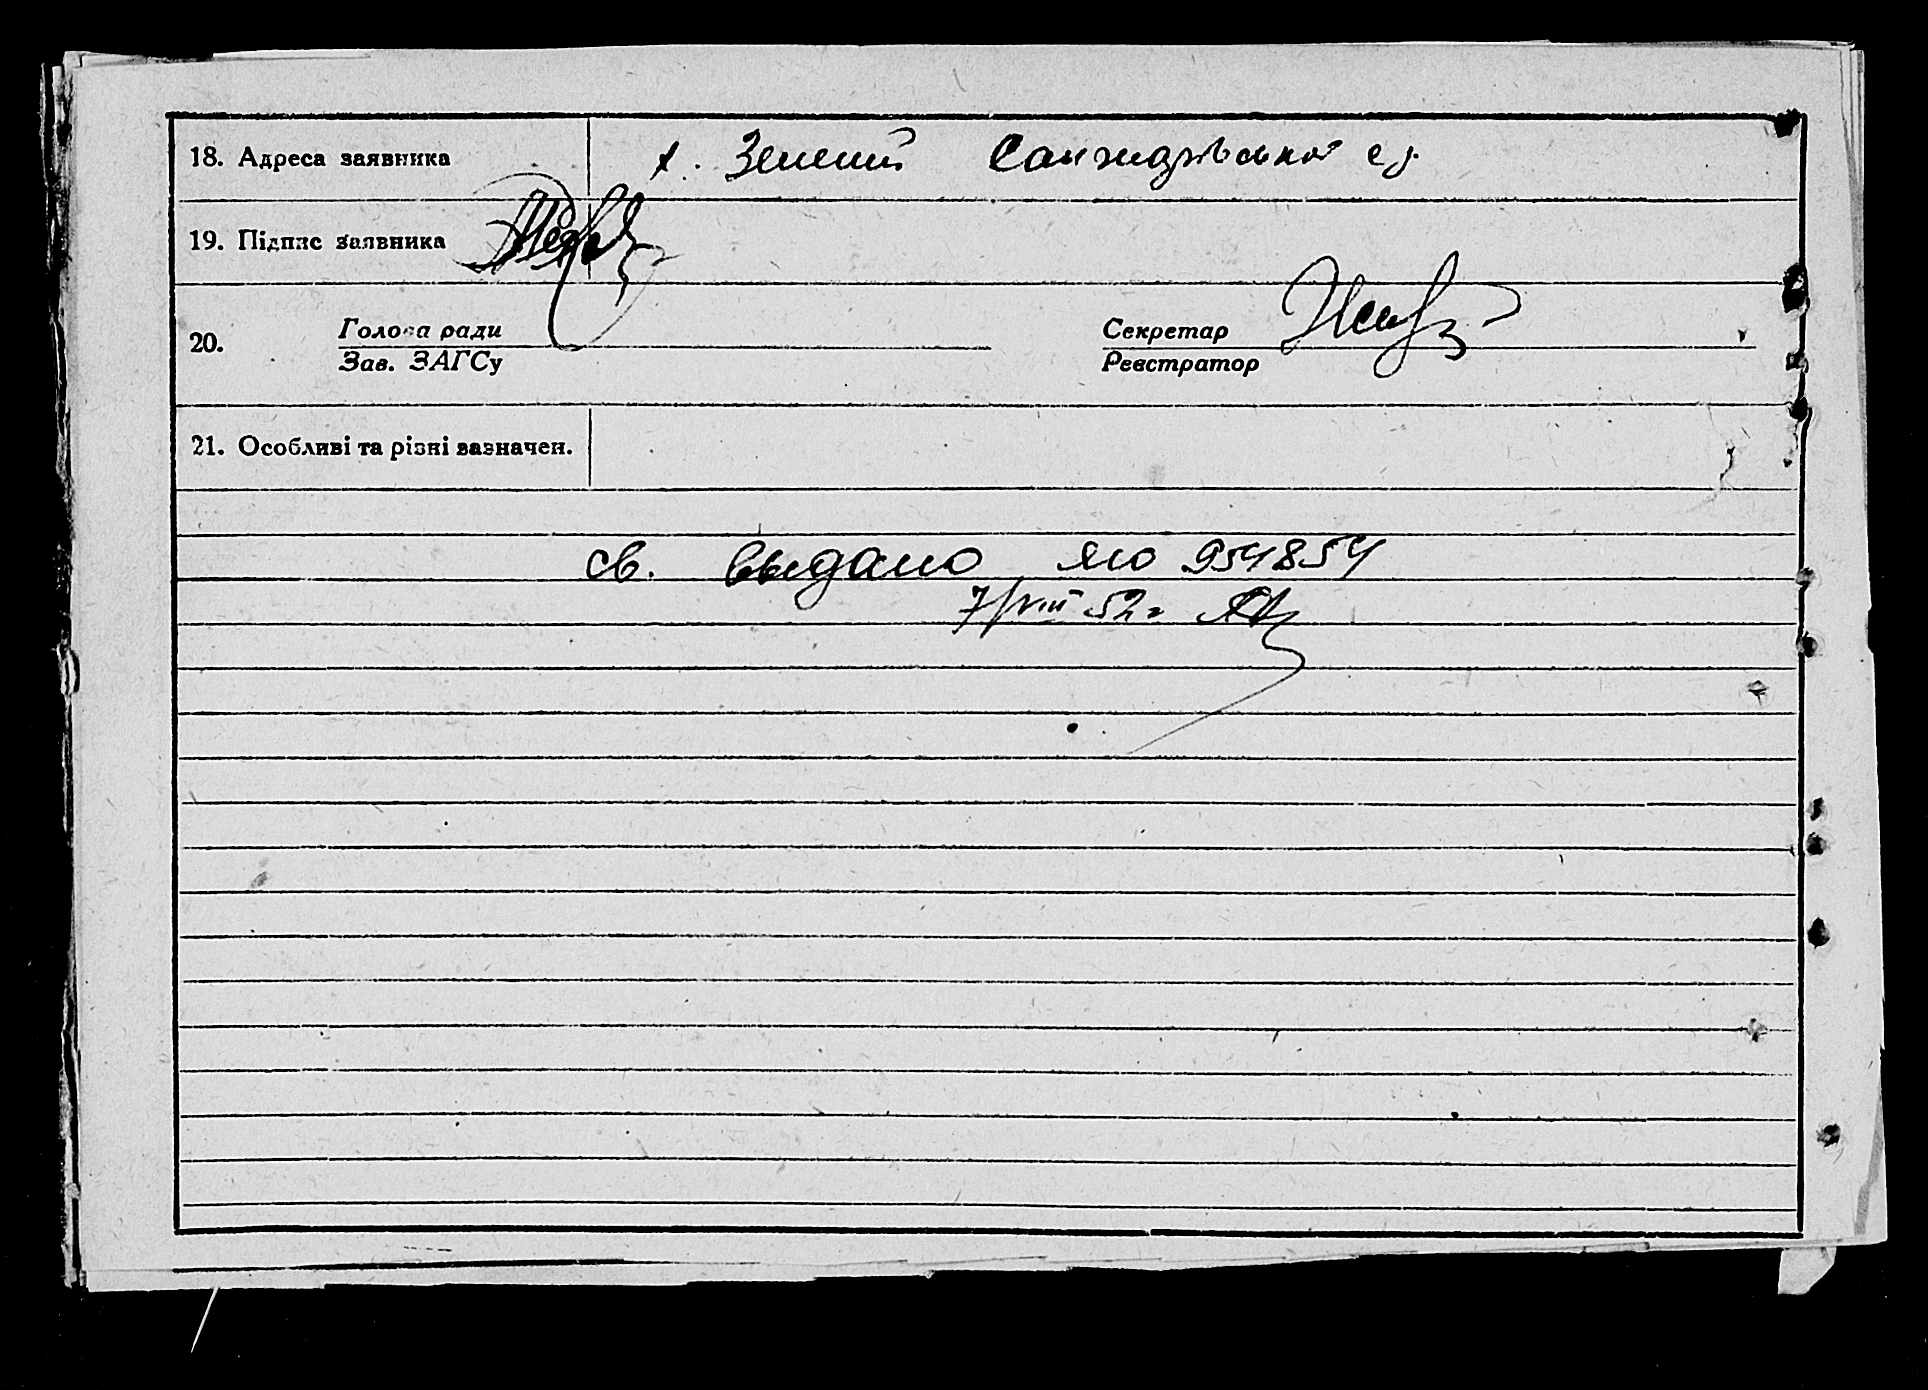 18. Адреса заявника х. Зелений Санжарівської с/р
19. Підпис заявника
20. Голова ради Секретар
Зав. ЗАГСу Реєстратор
21. Особливі та різні зазначен.
св. выдано ЯЮ 954854
7/VIII 52 г